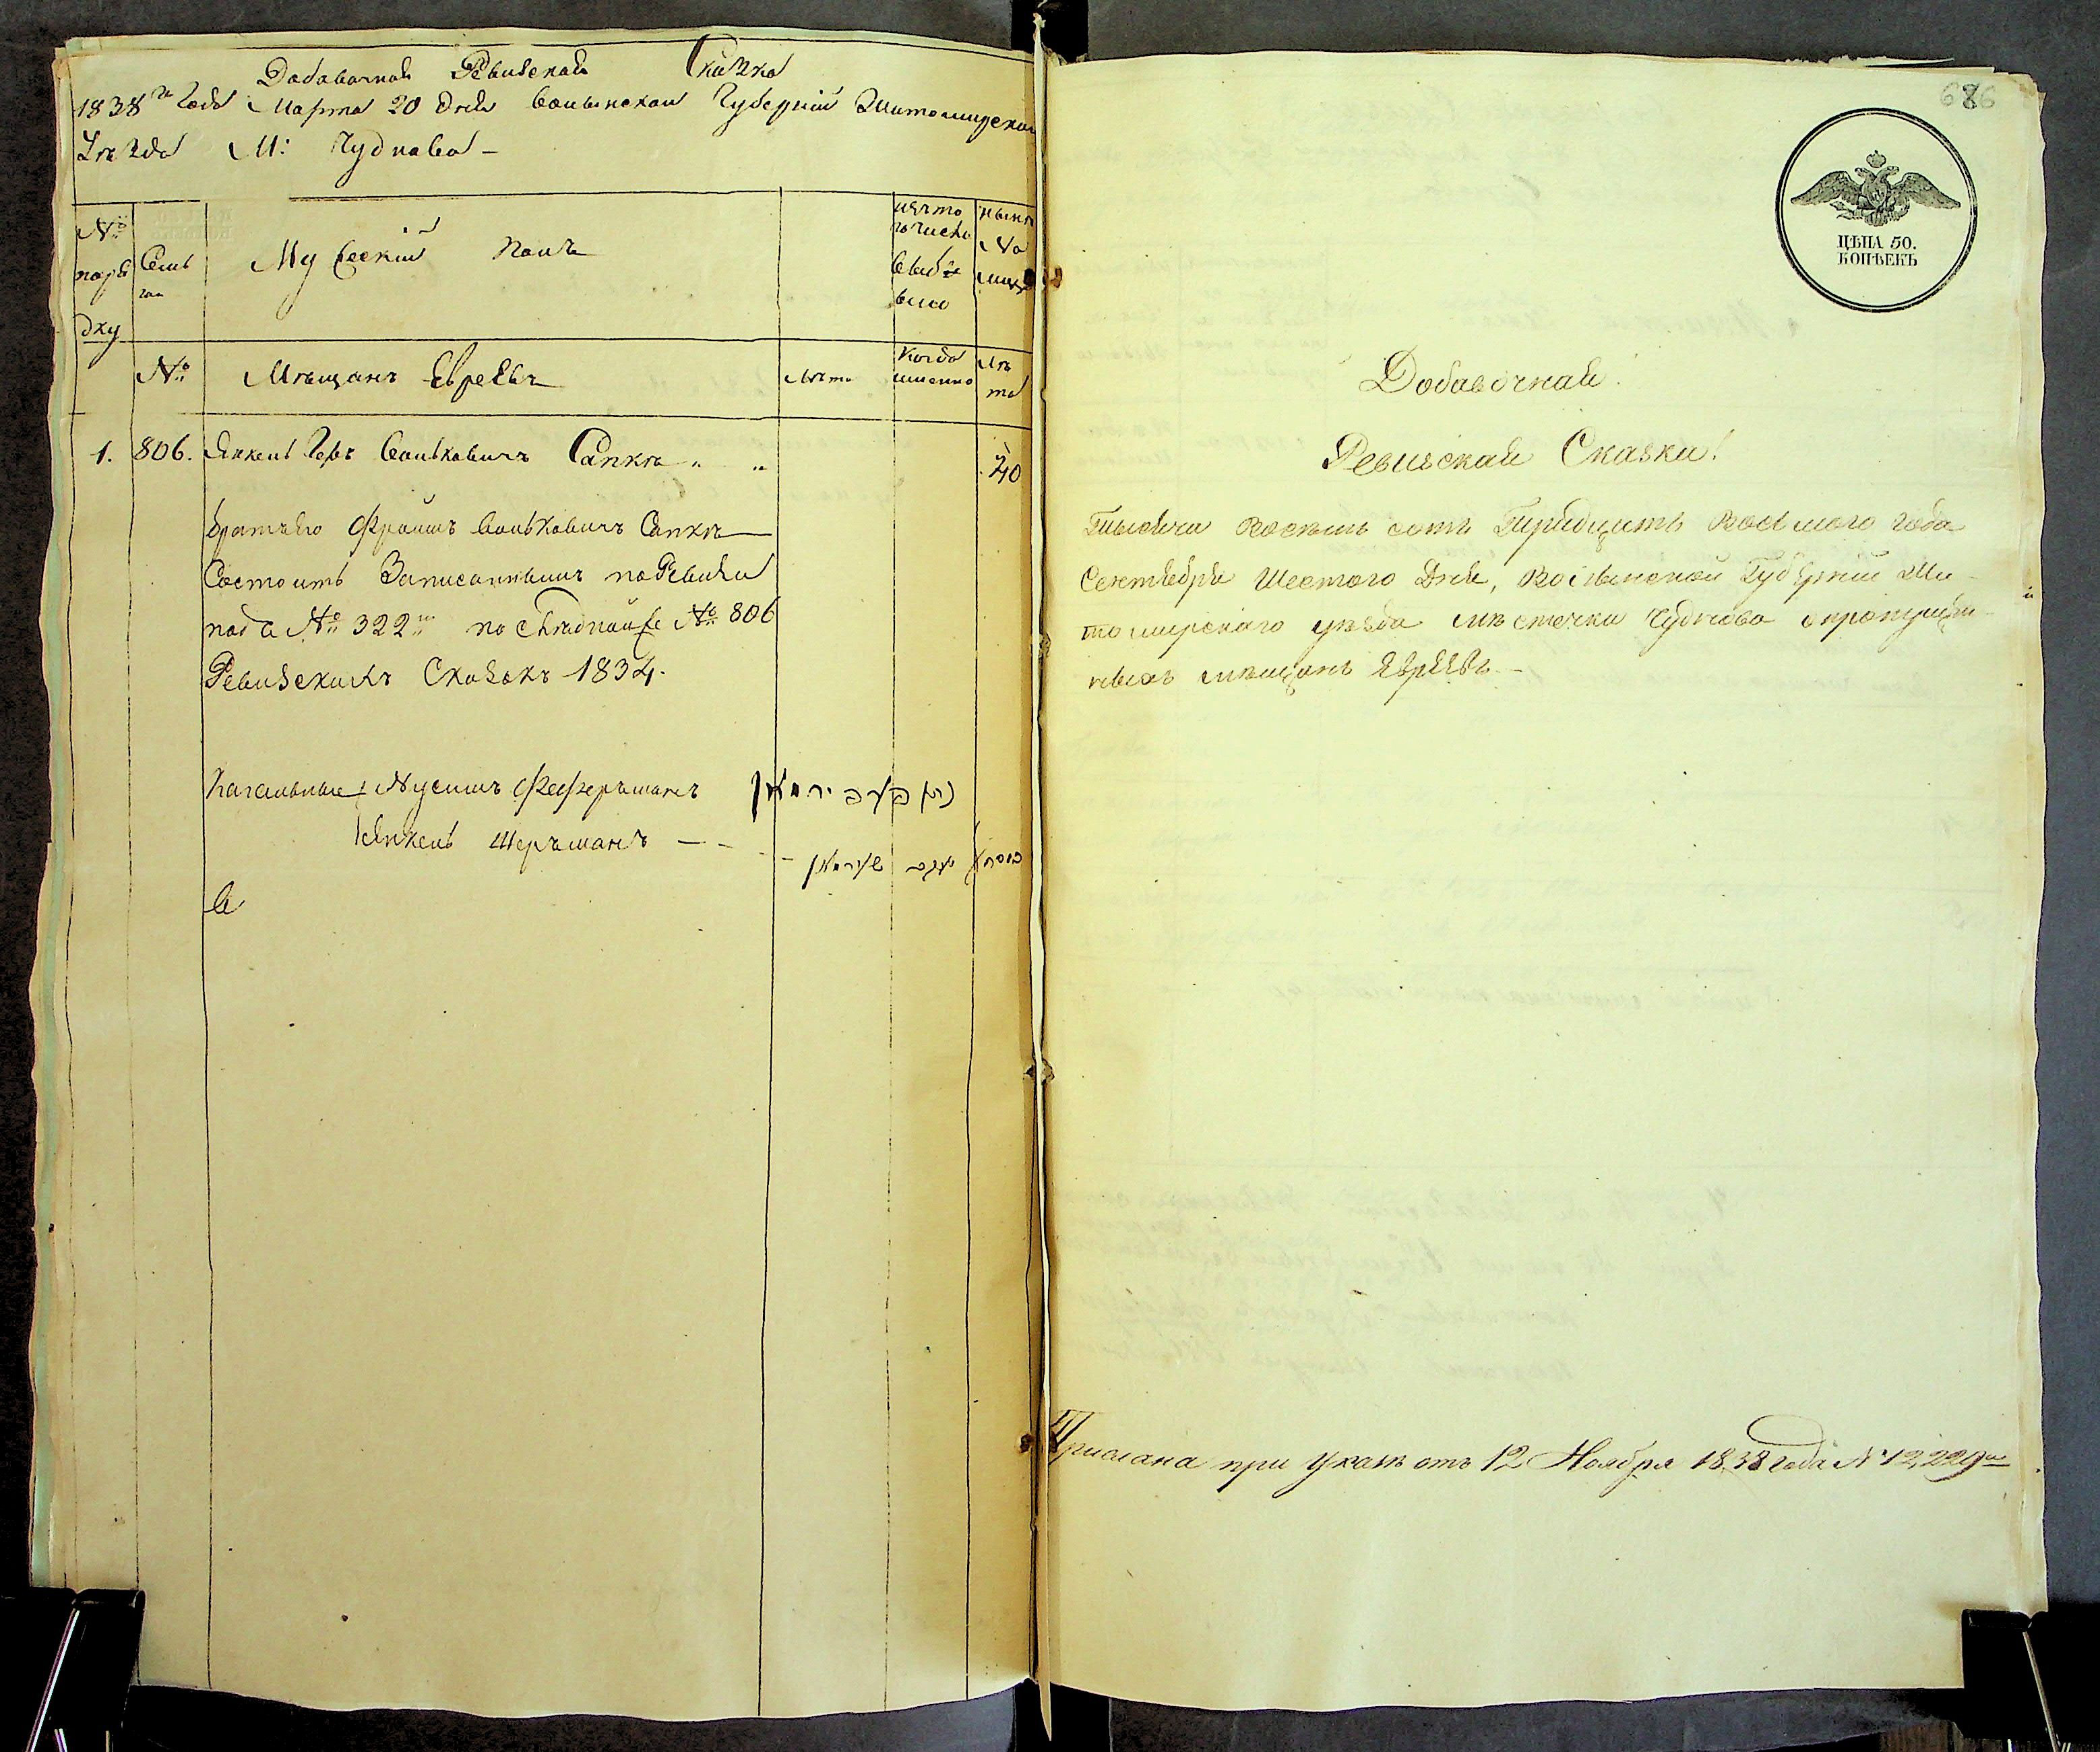 Добавочная Ревизская Сказка
1838го Года Марта 20 дня Волынской Губернии Житомирскаго
Уезда М: Чуднова –
№
поря
дку
Семь
Мужеский полъ
изъ то
го числа
выбы
ло
ныне
На
лицо
№
Мѣщанъ Евреевъ
лета
Когда
именно
Ле
та
1. 806. Янкель Герь Волькович Сапка „ „ 40
братъ его Фроимъ Волькович Сапка
Состоитъ Записаннымъ по Ревизии
подъ № 322м по № 806
Ревизскихъ Сказокъ 1834.
Кагальные Нусимъ Феферъманъ
Янкель Шерьманъ – – – –
Добавочная
Ревизская Сказка!
Тысяча восемь сотъ Тридцать Восьмого года
Сентября Шестого Дня, Волынской Губернии Жи-
томирскаго уезда местечка Чуднова о пропущен-
ныхъ мещанъ Евреевъ –
Прислана при Указе отъ 12 Ноября 1838 года № 12,229м
ЦѢНА 50.
КОПѢЕКЪ
686